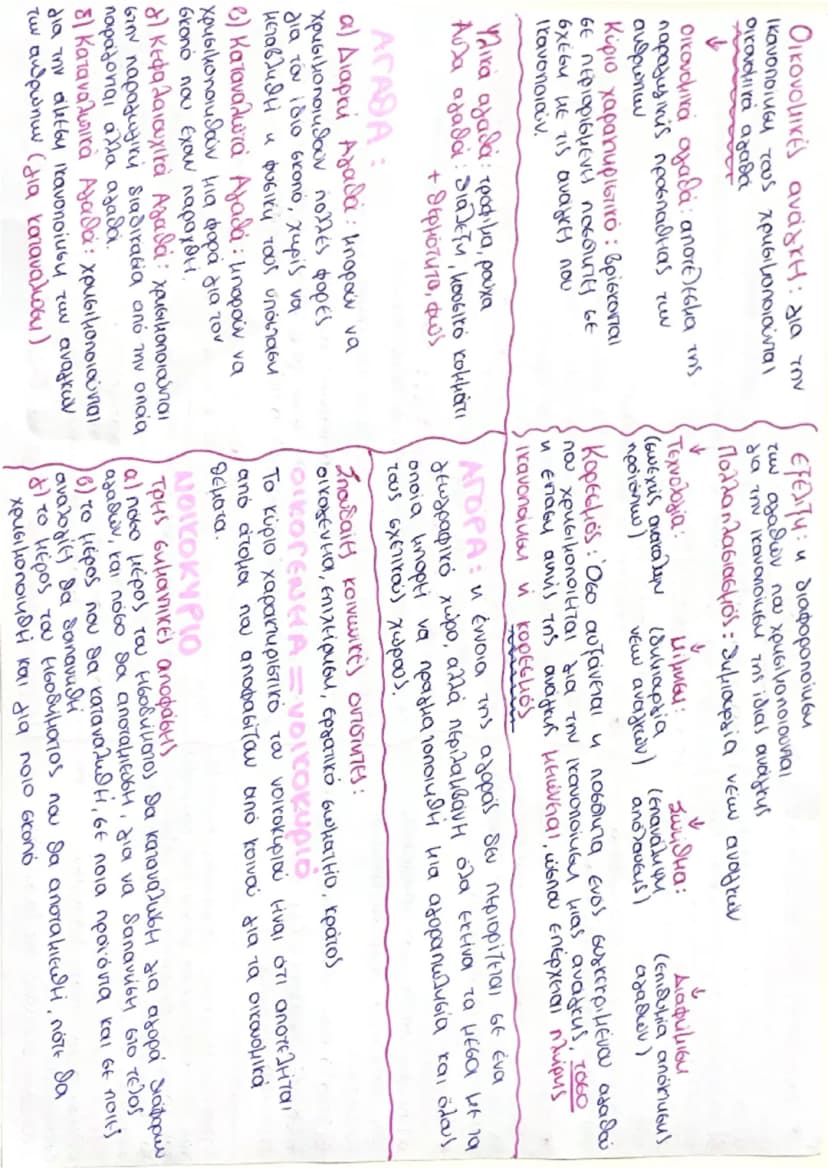 Οικονομικές ανάγκη: για την
ικανοποίηση τους χρησιμοποιούνται
οικονομικά αγαθά
↓
οικονομικά αγαθά: αποτέλεσμα της
παραγωγικής προσπάθειας των
ανθρώπων
Κύριο χαρακτηριστικό: βρίσκονται
σε περιορισμένες ποσότητες σε
σχέση με τις ανάγκες που
ικανοποιούν.
Υλικά αγαθά: τρόφιμα, ρούχα
Άυλα αγαθά: διάλεξη, μουσικό κομμάτι
+ θερμότητα, φως
ΑΓΑΘΑ:
α) Διαρκή Αγαθά: μπορούν να
χρησιμοποιηθούν πολλές φορές
για τον ίδιο σκοπό, χωρίς να
μεταβληθεί η φυσική τους υπόσταση
β) Καταναλωτά Αγαθά: μπορούν να
χρησιμοποιηθούν μια φορά για τον
σκοπό που έχουν παραχθεί.
γ) Κεφαλαιουχικά Αγαθά: χρησιμοποιούνται
στην παραγωγική διαδικασία από την οποία
παράγονται άλλα αγαθά.
δ) Καταναλωτικά Αγαθά: χρησιμοποιούνται
για την άμεση ικανοποίηση των αναγκών
των ανθρώπων (για κατανάλωση)
εξέλιξη: η διαφοροποίηση
των αγαθών που χρησιμοποιούνται
για την ικανοποίηση της ίδιας ανάγκης
Πολλαπλασιασμός: δημιουργία νέων αναγκών
↓ ↓ ↓ ↓
Τεχνολογία: Μίμηση: Συνήθεια: Διαφήμιση
(συνεχής ανακάλυψη (δημιουργία (επανάληψη (επιθυμία απόκτησης
προϊόντων) νέων αναγκών) απόλαυσης) αγαθών)
Κορεσμός: Όσο αυξάνεται η ποσότητα ενός συγκεκριμένου αγαθού
που χρησιμοποιείται για την ικανοποίηση μιας ανάγκης, τόσο
η ένταση αυτής της ανάγκης μειώνεται, ώσπου επέρχεται πλήρης
ικανοποίηση ή κορεσμός
ΑΓΟΡΑ: η έννοια της αγοράς δεν περιορίζεται σε ένα
γεωγραφικό χώρο, αλλά περιλαμβάνει όλα εκείνα τα μέσα με τα
οποία μπορεί να πραγματοποιηθεί μια αγοραπωλησία και όλους
τους σχετικούς χώρους.
Σπουδαίες κοινωνικές οντότητες:
οικογένεια, επιχείρηση, εργατικό σωματείο, κράτος
ΟΙΚΟΓΕΝΕΙΑ = νοικοκυριό
Το κύριο χαρακτηριστικό του νοικοκυριού είναι ότι αποτελείται
από άτομα που αποφασίζουν από κοινού για τα οικονομικά
θέματα.
ΝΟΙΚΟΚΥΡΙΟ
Τρεις σημαντικές αποφάσεις
α) πόσο μέρος του εισοδήματος θα καταναλώσει για αγορά διάφορων
αγαθών, και πόσο θα αποταμιεύσει, για να δαπανήσει στο τέλος
β) το μέρος που θα καταναλωθεί, σε ποια προϊόντα και σε ποιες
αναλογίες θα δαπανηθεί
γ) το μέρος του εισοδήματος που θα αποταμιευθεί, πότε θα
χρησιμοποιηθεί και για ποιο σκοπό